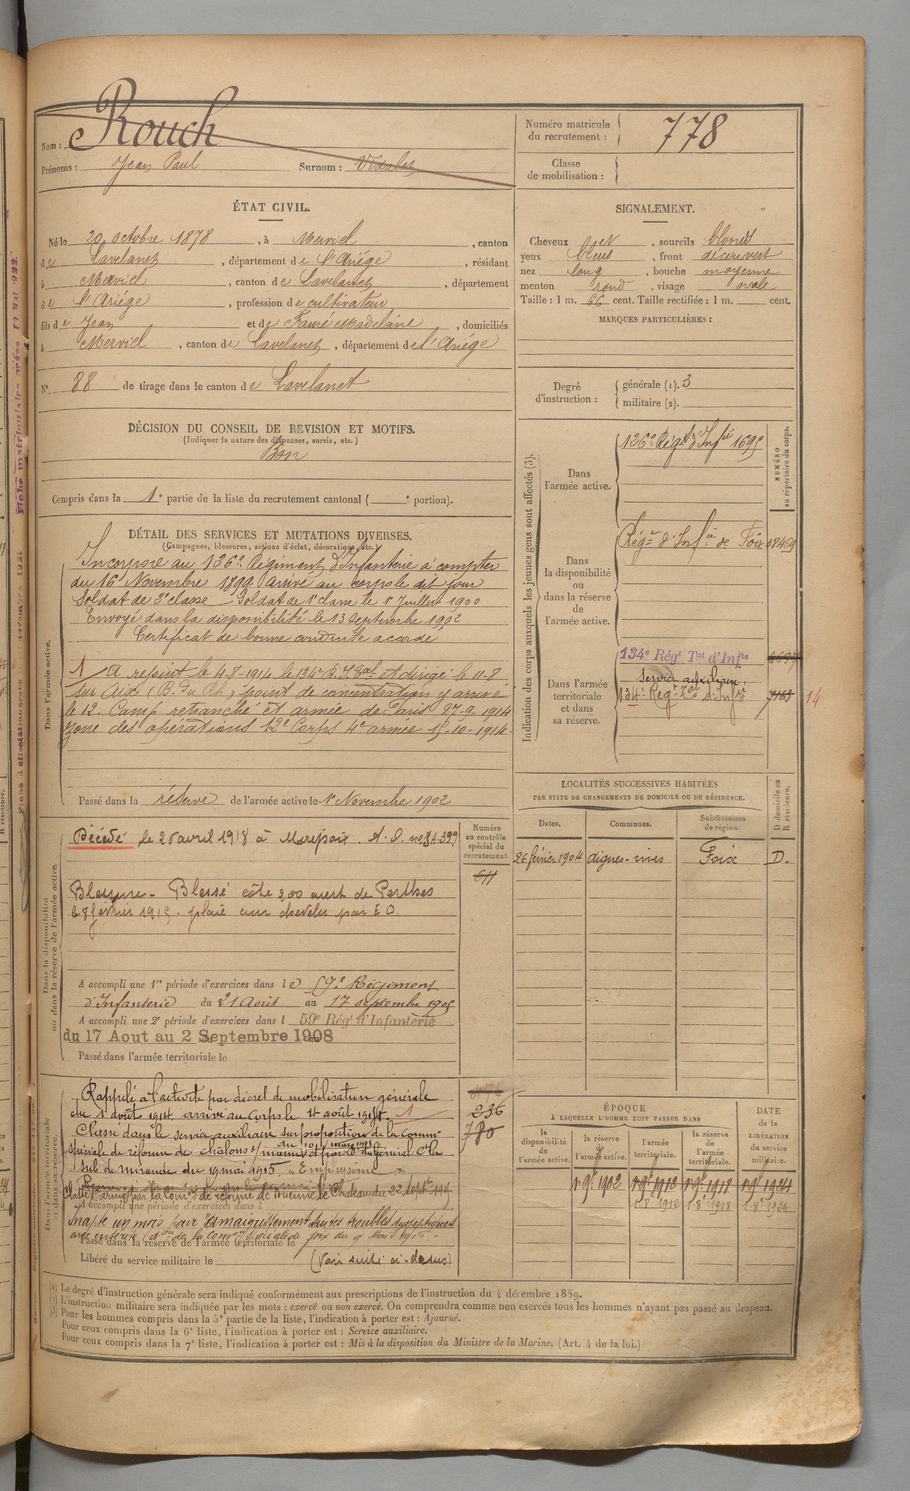 Nom : Rouch
Prénoms : Jean Paul Surnom :
Numéro matricule du recrutement : 778
Classe de mobilisation :
ÉTAT CIVIL.
Né le 20 octobre 1878, à Merviel, canton
de Lavelanet, département de l'Ariége, résidant
à Merviel, canton de Lavelanet, département
de l'Ariége, profession de cultivateur
fils de Jean et de Fauré Madelaine, domiciliés
à Merviel, canton de Lavelanet, département de l'Ariége
N° 88 de tirage dans le canton de Lavelanet
SIGNALEMENT.
Cheveux et, sourcils blonds
yeux bleus, front découvert
nez long, bouche moyenne
menton rond, visage ovale
Taille : 1 m. 66 cent. Taille rectifiée : 1 m. cent.
MARQUES PARTICULIÈRES :
Degré d'instruction : générale (1). 3
militaire (2).
DÉCISION DU CONSEIL DE REVISION ET MOTIFS.
(Indiquer la nature des dispenses, sursis, etc.)
Bon
Compris dans la 1e partie de la liste du recrutement cantonal ( e portion).
DÉTAIL DES SERVICES ET MUTATIONS DIVERSES.
(Campagnes, blessures, actions d'éclat, décorations, etc.)
Dans l'armée active.
Incorporé au 126e Régiment d'Infanterie à compter
du 16 Novembre 1899 arrivé au corps le dit jour
Soldat de 2e classe. Soldat de 1e classe le 1er Juillet 1900
Envoyé dans la disponibilité le 13 Septembre 1902
Certificat de bonne conduite accordé
1 A rejoint le 4-8-1914 le 134e R.T. et dirigé le 11-8
sur Aix (B. du Rh.) point de concentration y arrivé
le 12. Camp retranché et armée de Paris 27-9-1914
Zone des opérations 12e Corps 4e armée 15-10-1914.
Passé dans la réserve de l'armée active le 1er Novembre 1902
Indication des corps auxquels les jeunes gens sont affectés (3).
NUMÉRO au répertoire du corps.
Dans l'armée active.
126e Régt d'Infie 1695
Dans la disponibilité ou dans la réserve de l'armée active.
Régt d'Infie de Foix
Dans l'armée territoriale et dans sa réserve.
134e Régt Tal d'Infie
Service auxiliaire
134e Régt Ter d'Infie 14
LOCALITÉS SUCCESSIVES HABITÉES
PAR SUITE DE CHANGEMENTS DE DOMICILE OU DE RÉSIDENCE.
Dates. Communes. Subdivisions de région. D domicile ou R résidence.
26 février 1904 aigues-vives Foix D.
Dans la disponibilité ou dans la réserve de l'armée active.
Numéro au contrôle spécial du recrutement.
611
Décédé le 26 avril 1918 à Mirepoix.
Blessure - Blessé côte 200 ouest de Perthes
le 8 février 1915. plaie cuir chevelu par E.O.
A accompli une 1re période d'exercices dans le Régiment
d'Infanterie du 21 Août au 17 septembre 1905
A accompli une 2e période d'exercices dans l 59e Régt d'Infanterie
du 17 Aout au 2 Septembre 1908
Passé dans l'armée territoriale le
Rappelé à l'activité par décret de mobilisation générale
du 1 août 1914 arrivé au corps le 4 août 1914. 1
236
780
Classé dans le service auxiliaire sur proposition de la Comm
spéciale de réforme de Châlons s/ marne et par D du général Ct la
Sub de mirande du 19 mai 1915 "Emphysème"
Inapte un mois pour Amaigrissement
Passé dans la réserve de l'armée territoriale le
Libéré du service militaire le (Voir suite ci-dessus)
ÉPOQUE
À LAQUELLE L'HOMME DOIT PASSER DANS
la disponibilité de l'armée active.
la réserve de l'armée active.
l'armée territoriale.
la réserve de l'armée territoriale.
DATE DE LA LIBÉRATION DU SERVICE MILITAIRE.
Le degré d'instruction générale sera indiqué conformément aux prescriptions de l'instruction du 4 décembre 1889.
L'instruction militaire sera indiquée par les mots : exercé ou non exercé. On comprendra comme non exercés tous les hommes n'ayant pas passé au drapeau.
Pour les hommes compris dans la 5e partie de la liste, l'indication à porter est : Ajourné.
Pour ceux compris dans la 6e liste, l'indication à porter est : Service auxiliaire.
Pour ceux compris dans la 7e liste, l'indication à porter est : Mis à la disposition du Ministre de la Marine. (Art. 4 de la loi.)